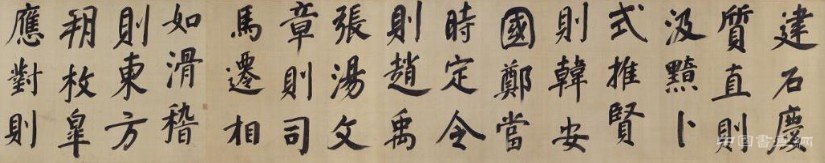 建石慶
質直則
汲黯卜
式推賢
則韓安
國鄭當
時定令
則趙禹
張湯文
章則司
馬遷相
如滑稽
則東方
朔枚皋
應對則
中国書画网